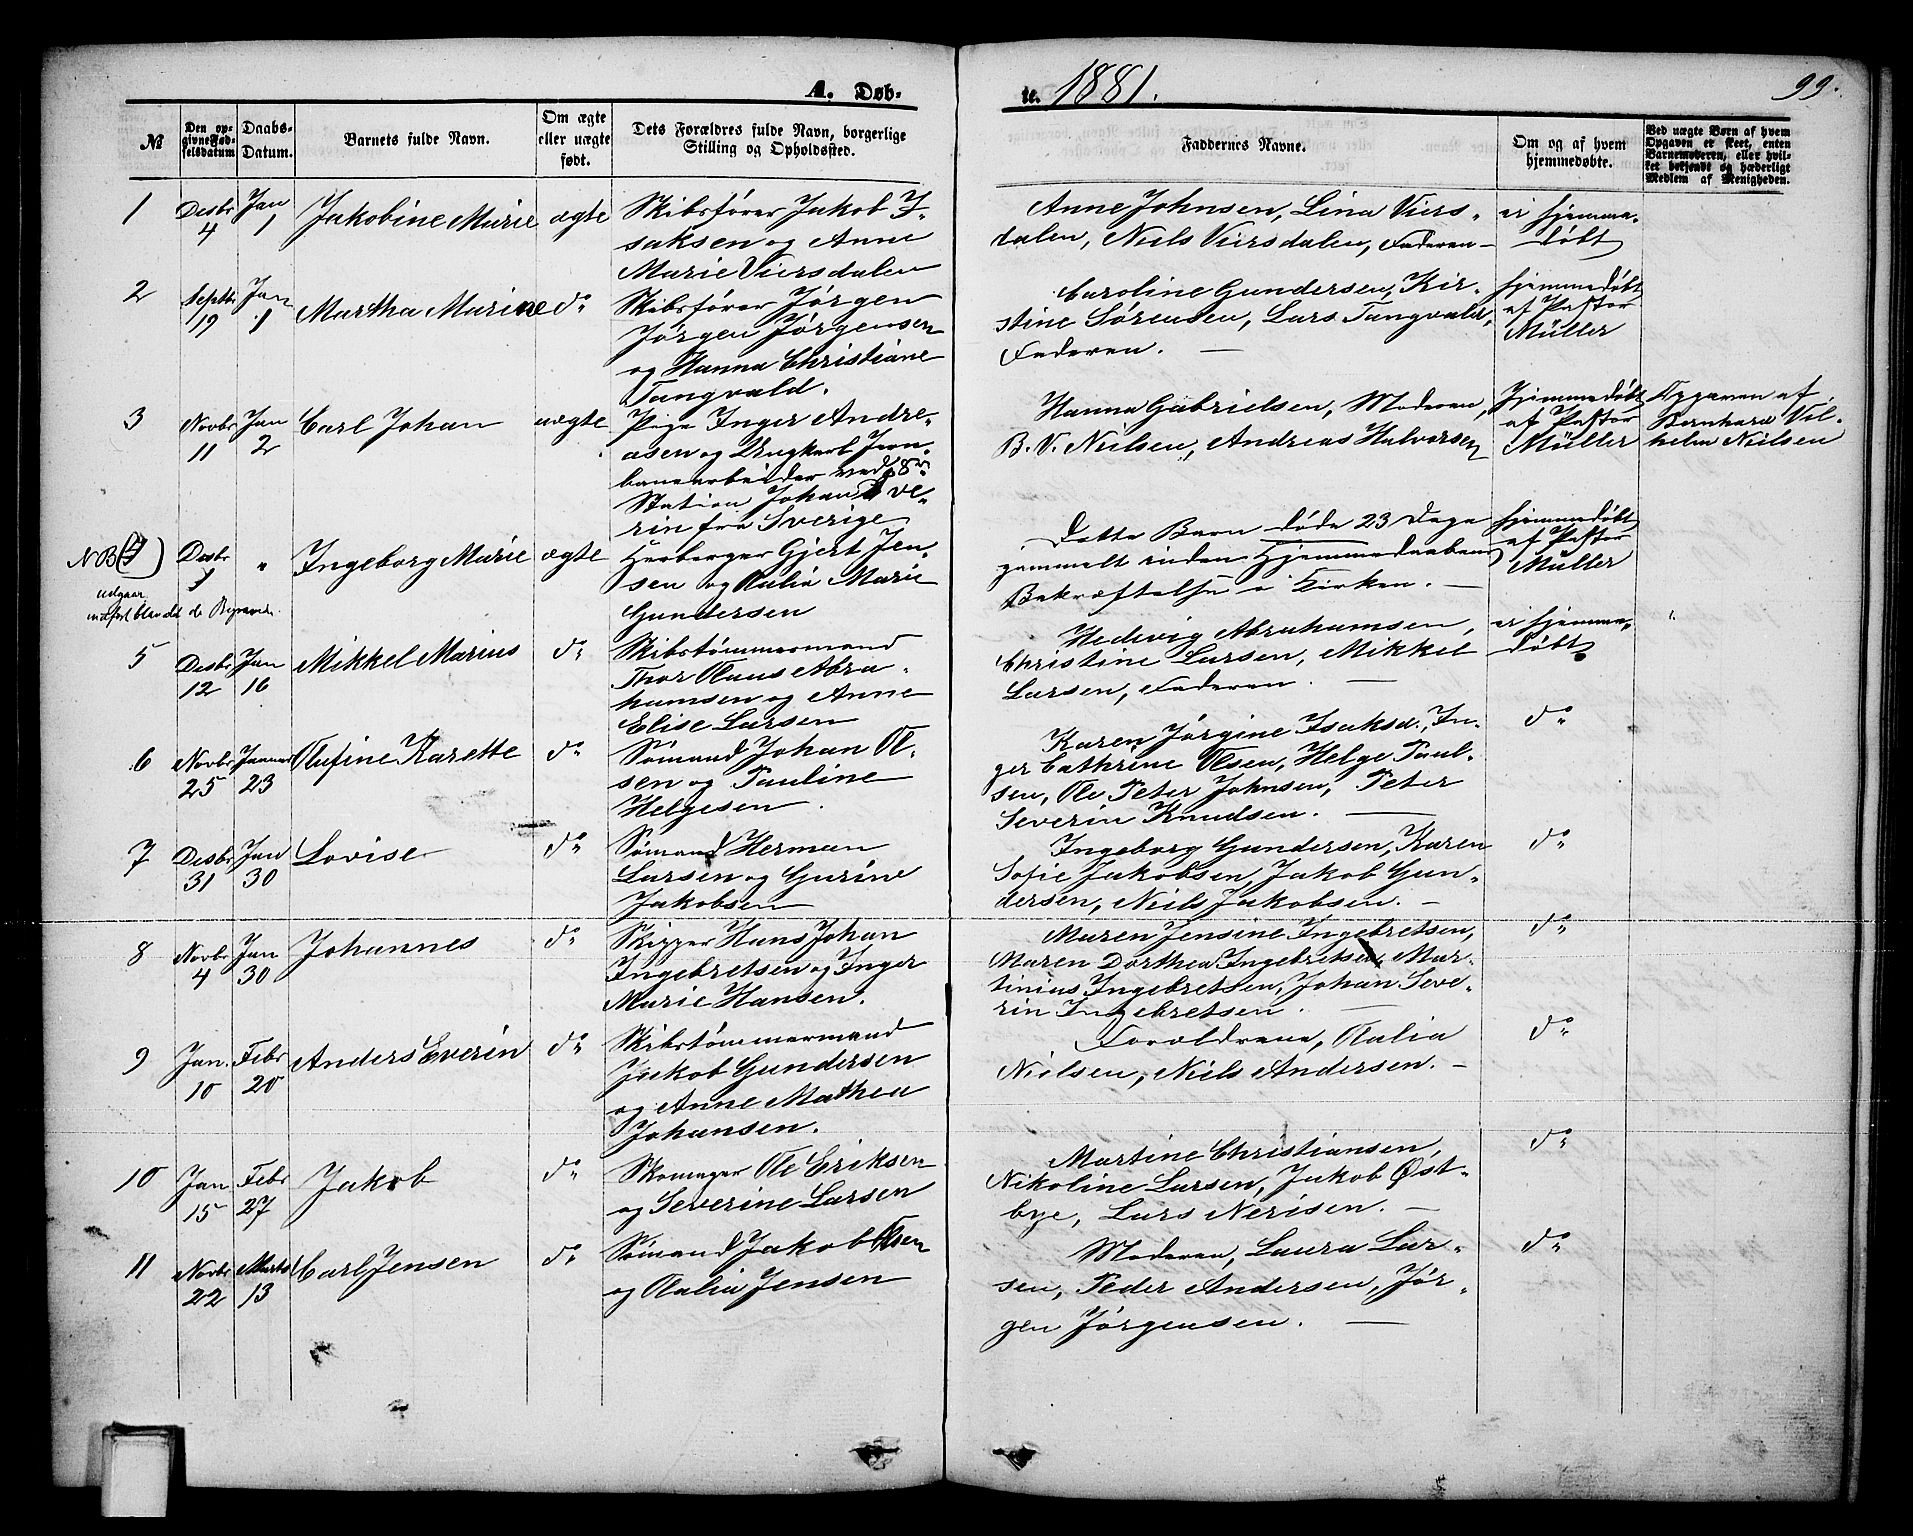 A. Døb-
te. 1881.
99.
№
Den op-
givne Fød-
selsdatum
Daabs-
Datum.
Barnets fulde Navn.
Om ægte
eller uægte
født.
Dets Forældres fulde Navn, borgerlige
Stilling og Opholdssted.
Faddernes Navne.
Om og af hvem
hjemmedøbte.
Ved uægte Børn af hvem
Opgaven er skeet, enten
Barnemoderen, eller hvil-
ket bekjendt og hæderligt
Medlem af Menigheden.
1
Desbr
4
Jan
1
Jakobine Marie
ægte
Skibsfører Jakob I-
saksen og Anne
Marie Viersdalen
Anne Johnsen, Lina Viers-
dalen, Niels Viersdalen, Faderen —
ei hjemme-
døbt
2
Septbr
19
Jan
1
Martha Marine
do
Skibsfører Jørgen
Jørgen Jørgensen
og Hanna Christiane
Tangvald.
Caroline Gundersen, Kir-
stine Sørensen, Lars Tangvald,
Faderen. —
hjemmedøbt
af Pastor
Müller
3
Novbr
11
Jan
2
Carl Johan
uægte
Pige Inger Andre-
asen og Ungkarl Jern-
banearbeider ved 8de
Station Johan Seve-
rin fra Sverige
Hanna Gabrielsen, Moderen,
B. V. Nielsen, Andreas Halvorsen
Hjemmedøbt
af Pastor
Müller
Opgaven af
Bernhard Vil-
helm Nielsen
NB (4)
udgaar,
indført blandt de
Desbr
1
"
Ingeborg Marie
ægte
Herberger Gjert Jen-
sen og Olalia Marie
Gundersen
Dette Barn døde 23 Dage
gammelt inden Hjemmedaabens
Bekræftelse i Kirken. —
hjemmedøbt
af Pastor
Müller
5
Desbr
12
Jan
16
Mikkel Marius
do
Skibstømmermand
Thor Olaus Abra-
hamsen og Anne
Elise Larsen
Hedevig Abrahamsen,
Christine Larsen, Mikkel
Larsen, Faderen. —
ei hjemme-
døbt
6
Novbr
25
Januar
23
Olufine Karette
do
Sømand Johan Ol-
sen og Pauline
Helgesen.
Karen Jørgine Isaksd., In-
ger Cathrine Olsen, Helge Paul-
sen, Ole Peter Johnsen, Peter
Severin Knudsen. —
do
7
Desbr
31
Jan
30
Lovise
do
Sømand Herman
Larsen og Gurine
Jakobsen
Ingeborg Gundersen, Karen
Sofie Jakobsen, Jakob Gun-
dersen, Niels Jakobsen. —
do
8
Novbr
4
Jan
30
Johannes
do
Skipper Hans Johan
Ingebretsen og Inger
Marie Hansen.
Maren Jensine Ingebretsen,
Maren Dorthea Ingebretsen, Mar-
tinius Ingebretsen, Johan Seve-
rin Ingebretsen. —
do
9
Jan.
10
Febr
20
Anders Everin
do
Skibstømmermand
Jakob Gundersen
og Anne Mathea
Johansen.
Forældrene, Olalia
Nielsen, Niels Andersen. —
do
10
Jan
15
Febr
27
Jakob
do
Skomager Ole Eriksen
og Severine Larsen
Martine Christiansen,
Nikoline Larsen, Jakob Øst-
bye, Lars Nerisen. —
do
11
Novbr
22
Marts
13
Carl Jensen
do
Sømand Jakob Olsen
og Olalia Jensen
Moderen, Laura Lar-
sen, Peder Andersen, Jør-
gen Jørgensen. —
do